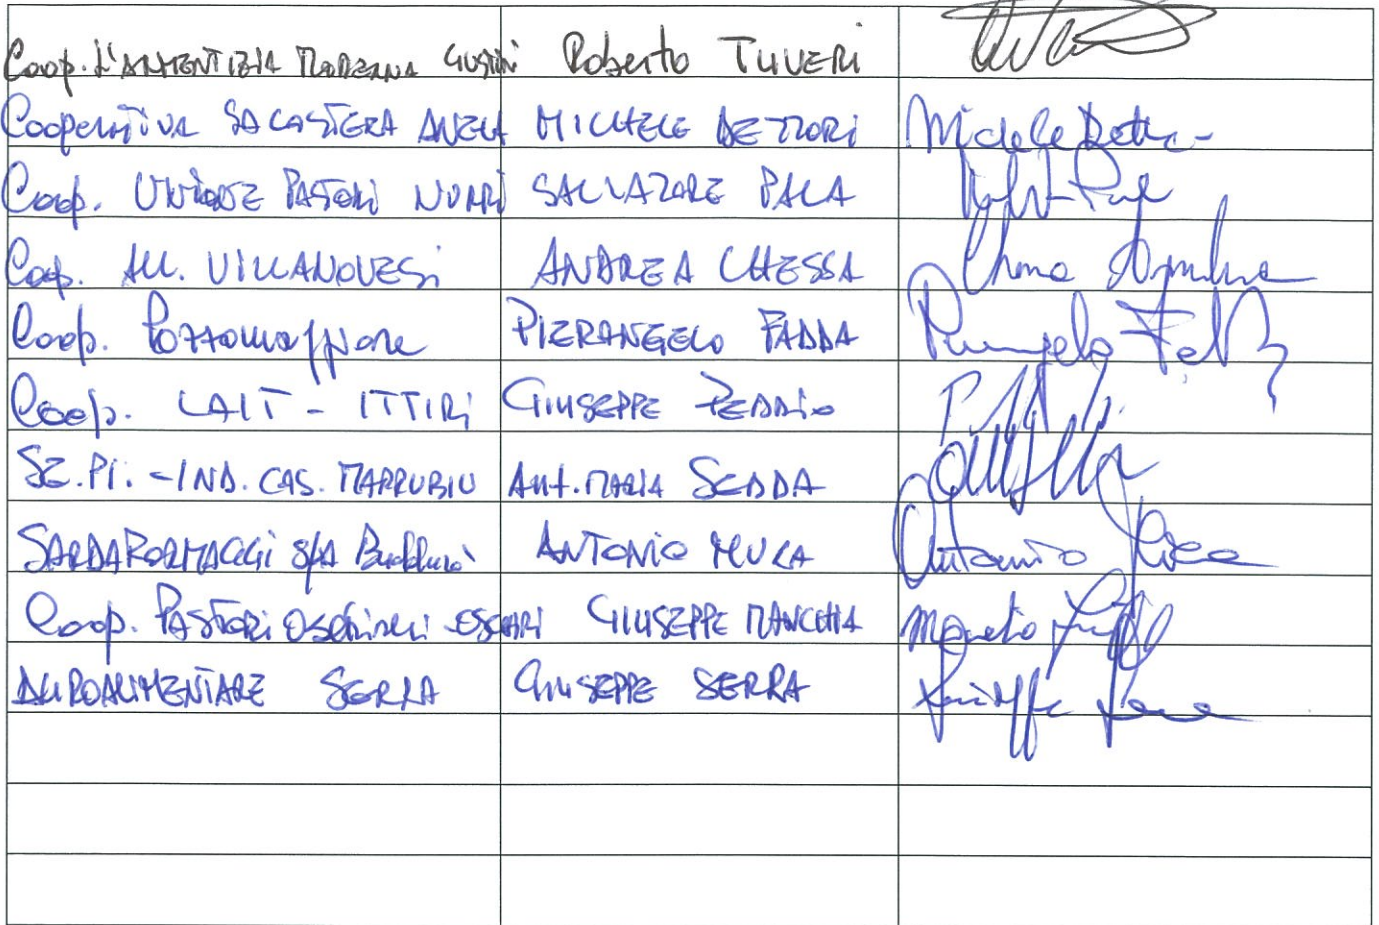 Coop. L'ARMENTIZIA MODERNA GUSPINI Roberto TUVERI
Cooperativa SA CASTERA ANELA MICHELE DETTORI Michele Dettori
Coop. UNIONE PASTORI NURRI SALVATORE PALA
Coop. ALL. VILLANOVESI ANDREA CHESSA Chessa Andrea
Coop. Pozzomaggiore PIERANGELO FADDA Pierangelo Fadda
Coop. LAIT - ITTIRI GIUSEPPE PEDDIO
SE.PI. - IND. CAS. MARRUBIU ANT. MARIA SEDDA
SARDAFORMAGGI SpA Buddusò ANTONIO MURA Antonio Mura
Coop. PASTORI OSCHIRESI - OSCHIRI GIUSEPPE MANCHIA
AGROALIMENTARE SERRA GIUSEPPE SERRA Giuseppe Serra